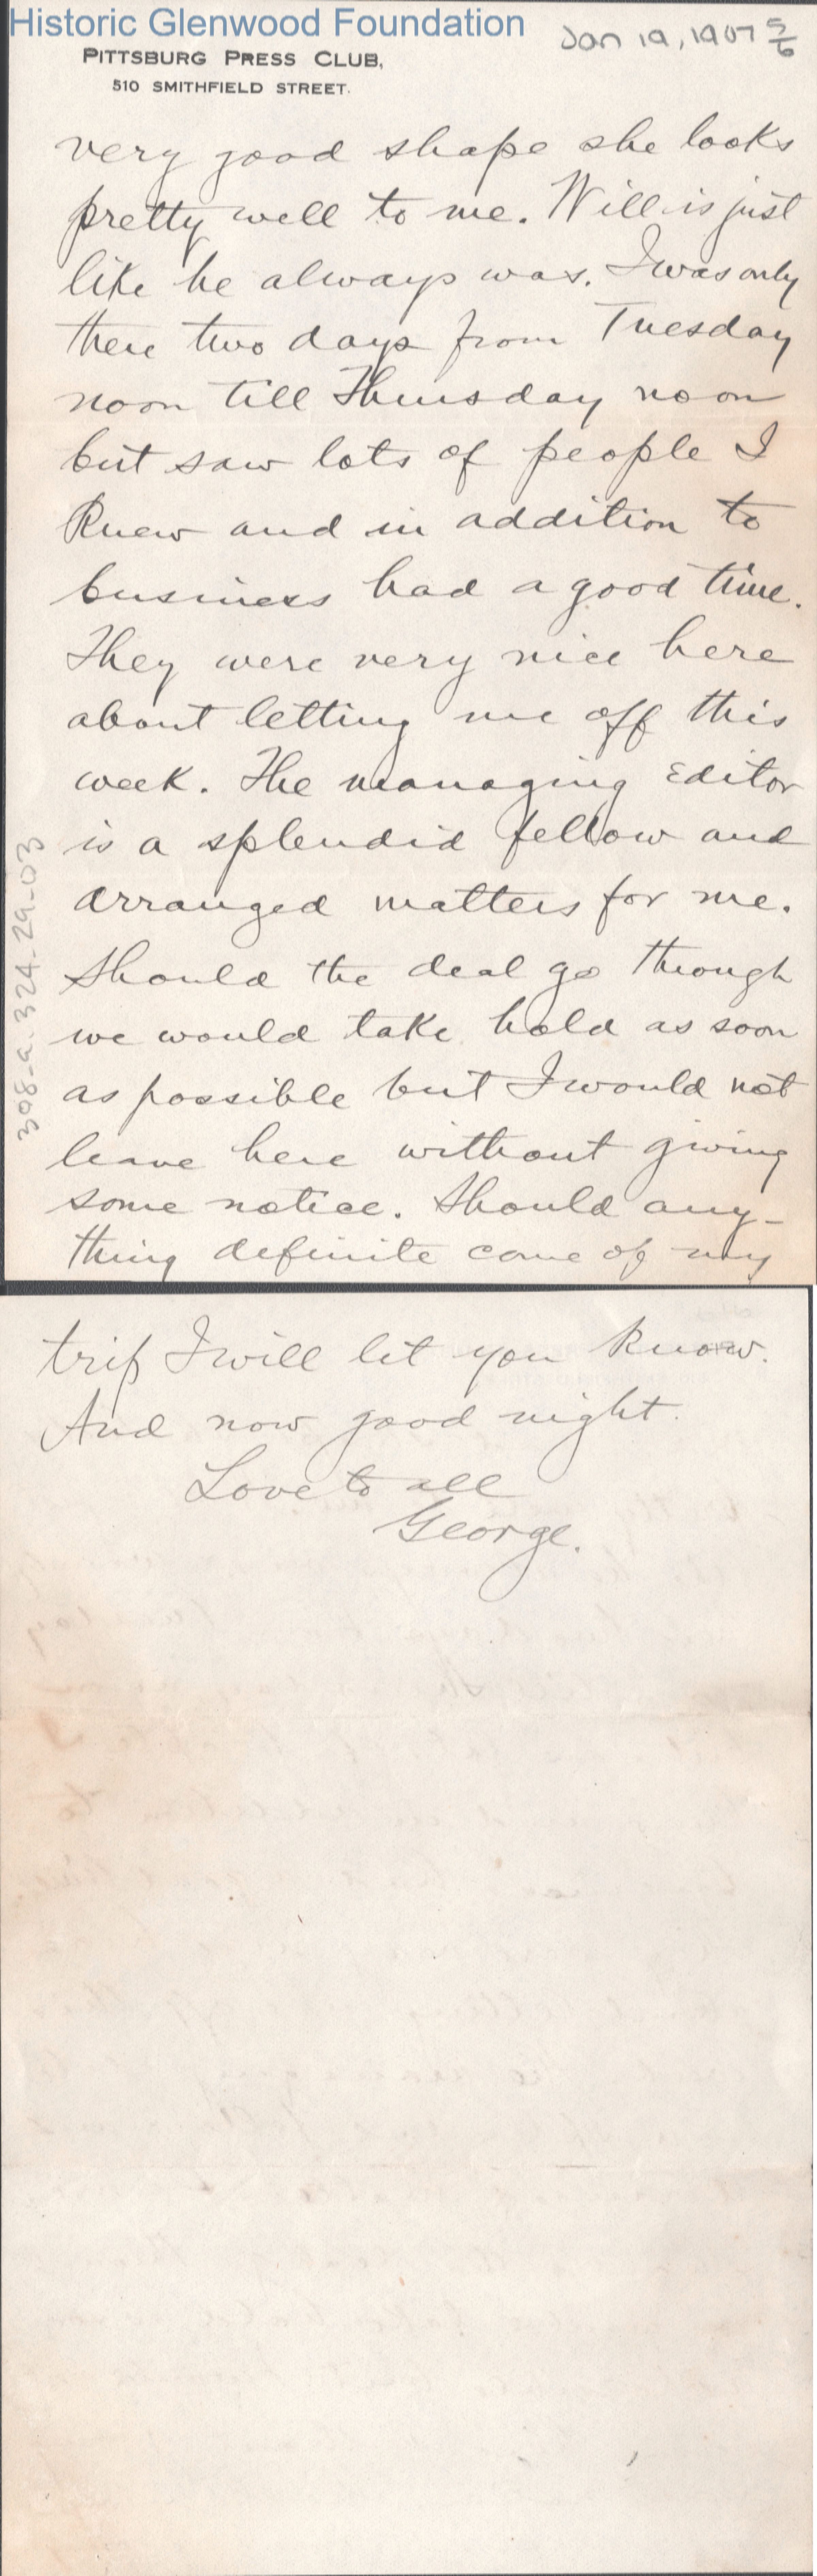 Historic Glenwood Foundation
Jan 19, 1907 5/6
PITTSBURG PRESS CLUB,
510 SMITHFIELD STREET.
very good shape she looks
pretty well to me. Will is just
like he always was. I was only
there two days from Tuesday
noon till Thursday noon
but saw lots of people I
knew and in addition to
business had a good time.
They were very nice here
about letting me off this
week. The managing Editor
is a splendid fellow and
arranged matters for me.
Should the deal go through
we would take hold as soon
as possible but I would not
leave here without giving
some notice. Should any-
thing definite come of my
398-a.324-29-03
trip I will let you know.
And now good night.
Love to all
George.